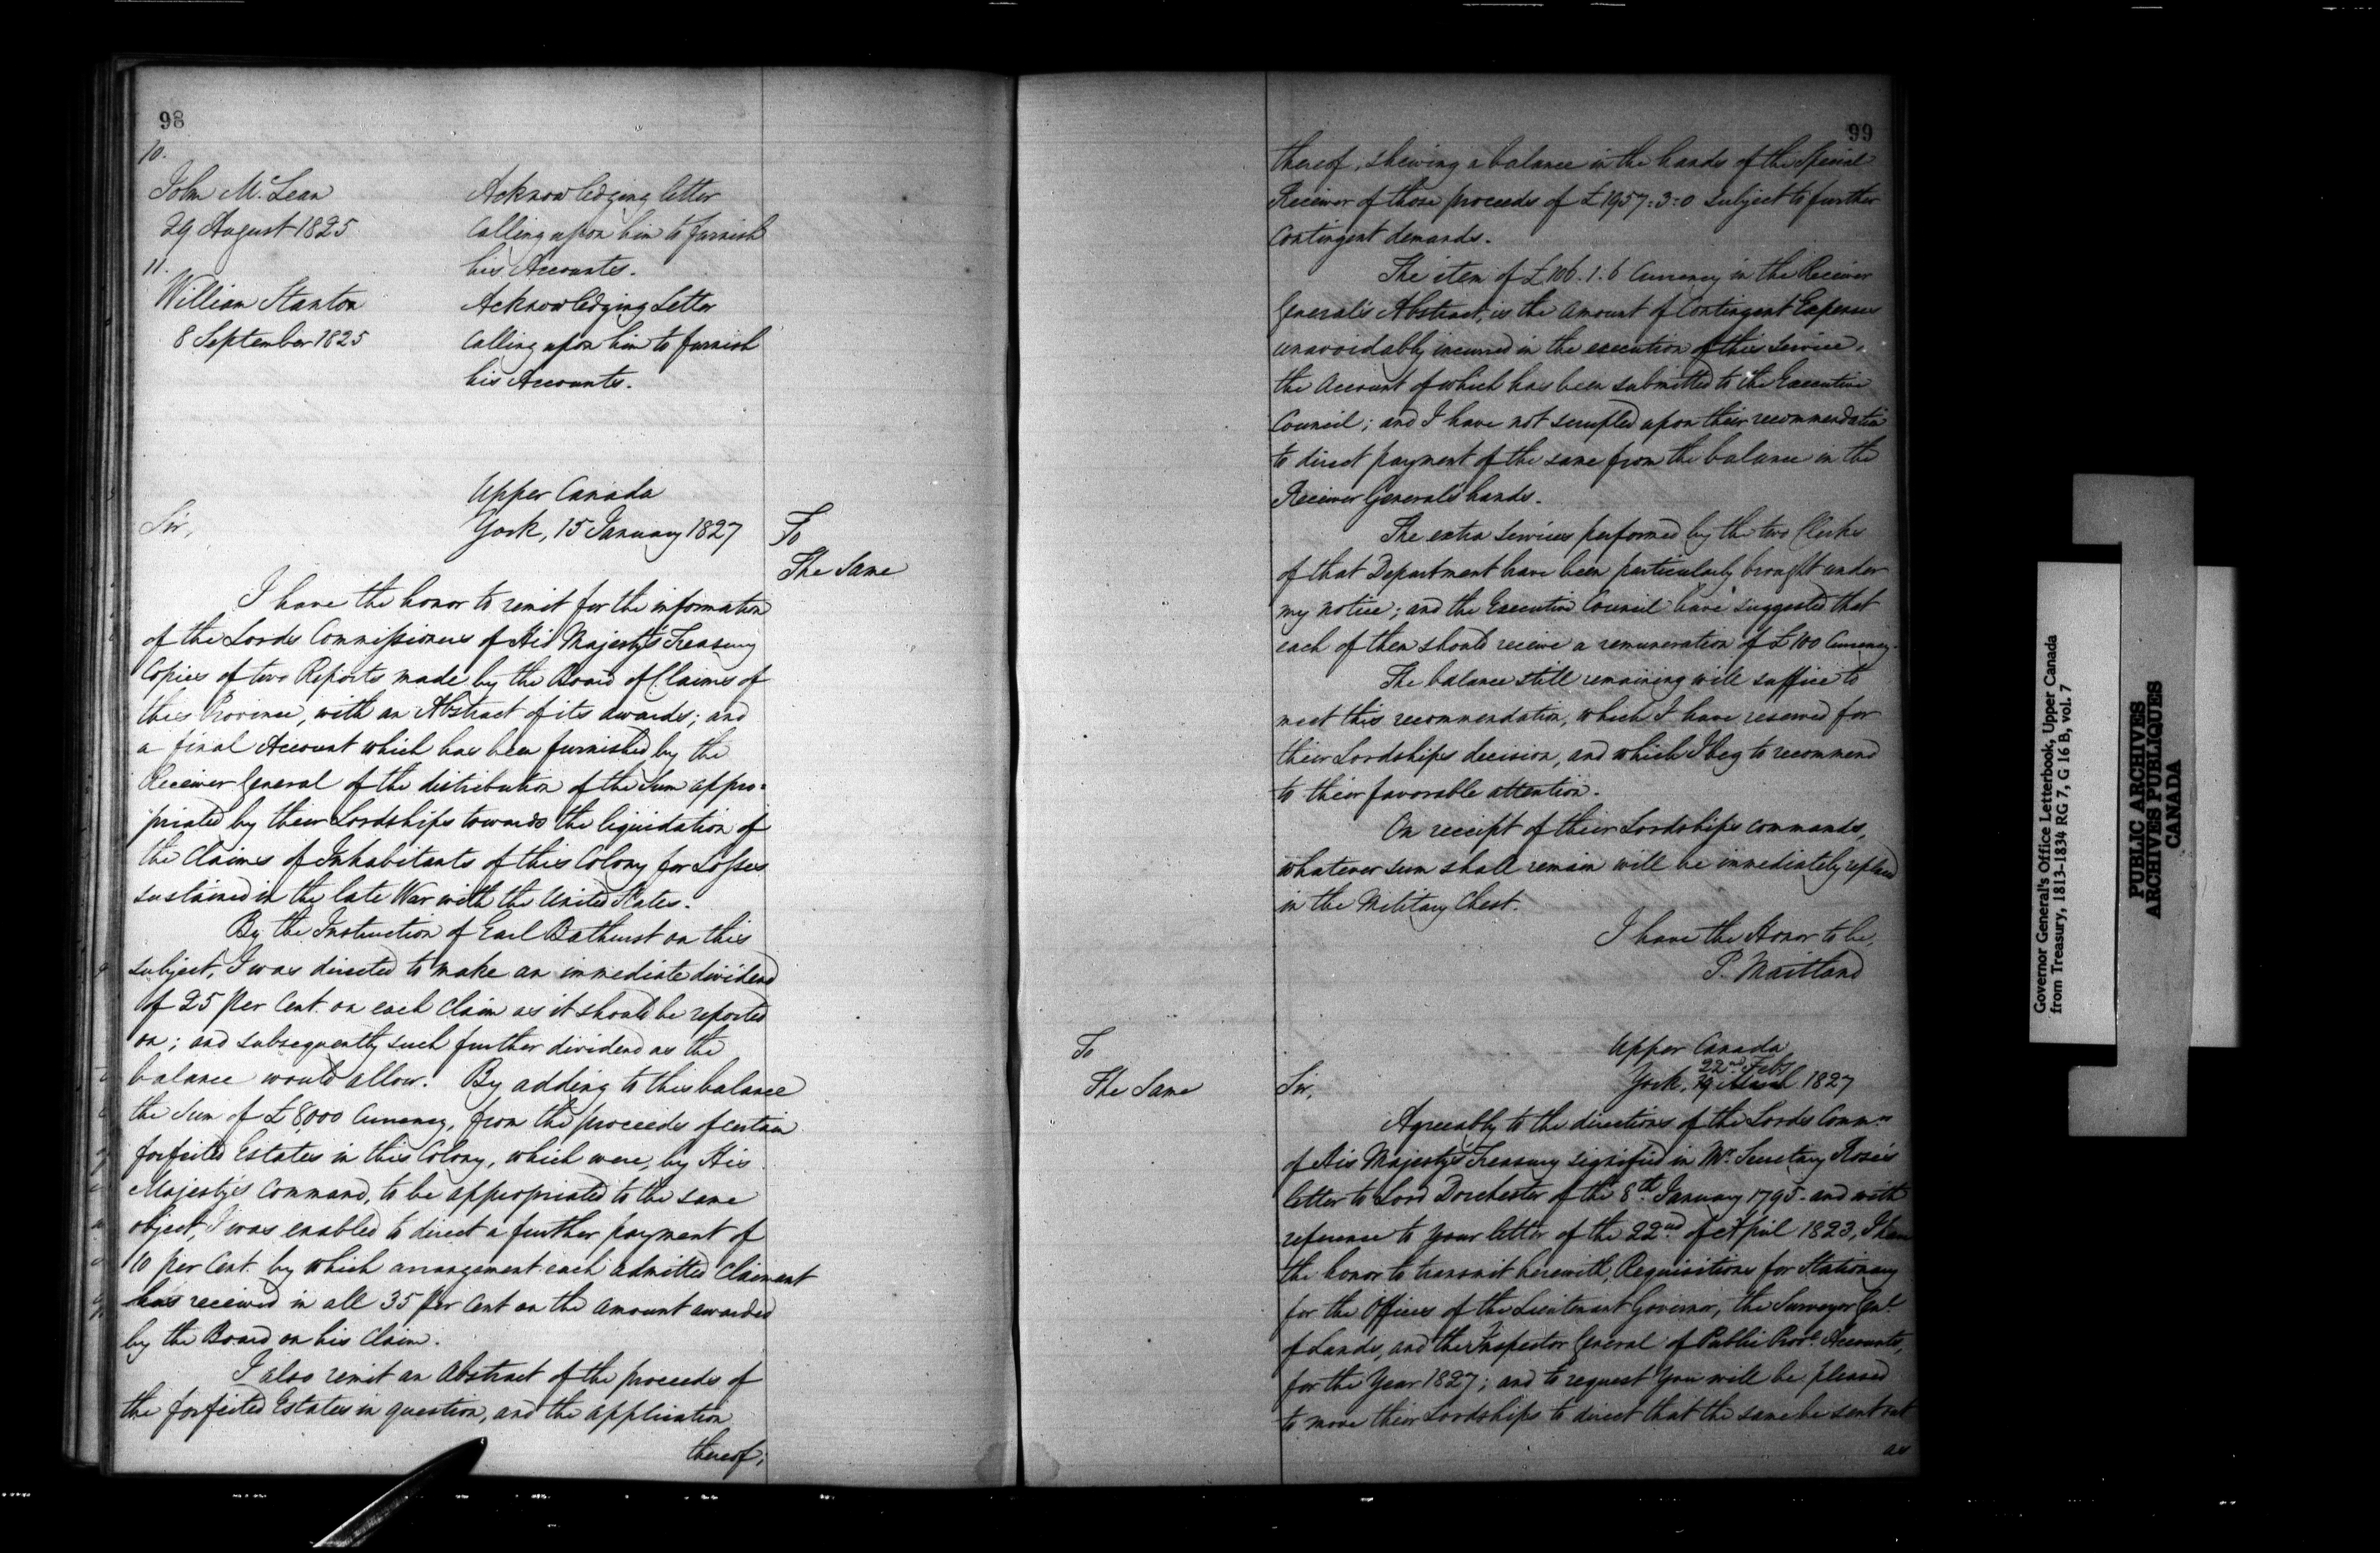 98
10.
John McLean Acknowledging letter
29 August 1825 Calling upon him to furnish
his Accounts.
11.
William Stanton Acknowledging Letter
8 September 1825 Calling upon him to furnish
his Accounts.
Upper Canada
Sir, York, 15 January 1827
To
The Same
I have the honor to remit for the information
of the Lords Commissioners of His Majesty's Treasury
Copies of two Reports made by the Board of Claims of
this Province, with an Abstract of its awards; and
a final Account which has been furnished by the
Receiver General of the distribution of the Sum appro=
priated by their Lordships towards the liquidation of
the Claims of Inhabitants of this Colony for Losses
sustained in the late War with the United States.
By the Instruction of Earl Bathurst on this
subject, I was directed to make an immediate dividend
of 25 per Cent. on each Claim as it should be reported
on; and subsequently such further dividend as the
balance would allow. By adding to this balance
the Sum of £8,000 Currency, from the proceeds of certain
forfeited Estates in this Colony, which were, by His
Majesty's Command, to be appropriated to the same
object, I was enabled to direct a further payment of
10 per Cent. by which arrangement each admitted Claimant
has received in all 35 per Cent on the amount awarded
by the Board on his Claim.
I also remit an Abstract of the proceeds of
the forfeited Estates in question, and the application
thereof;
99
thereof, shewing a balance in the hands of the Special
Receiver of those proceeds of £1957=3=0 subject to further
Contingent demands.
The item of £106.1.6 Currency in the Receiver
General's Abstract, is the amount of Contingent Expenses
unavoidably incurred in the execution of this Service,
the Account of which has been submitted to the Executive
Council; and I have not scrupled upon their recommendation
to direct payment of the same from the balance in the
Receiver General's hands.
The extra services performed by the two Clerks
of that Department have been particularly brought under
my notice; and the Executive Council have suggested that
each of them should receive a remuneration of £100 Currency.
The balance still remaining will suffice to
meet this recommendation, which I have reserved for
their Lordships decision, and which I beg to recommend
to their favorable attention.
On receipt of their Lordships commands,
whatever sum shall remain will be immediately replaced
in the Military Chest.
I have the Honor to be,
P. Maitland
To
The Same
Upper Canada
22nd Feby
Sir, York, 1827
Agreeably to the directions of the Lords Commrs
of His Majesty's Treasury signified in Mr. Secretary Rose's
letter to Lord Dorchester of the 8th January 1795 - and with
reference to your letter of the 22nd of April 1823, I have
the honor to transmit herewith, Requisitions for Stationary
for the Offices of the Lieutenant Governor, the Surveyor Genl
of Lands, and the Inspector General of Public Provl Accounts,
for the Year 1827; and to request You will be pleased
to move their Lordships to direct that the same be sent out
as
Governor General's Office Letterbook, Upper Canada
from Treasury, 1813-1834 RG 7, G 16 B, vol. 7
PUBLIC ARCHIVES
ARCHIVES PUBLIQUES
CANADA